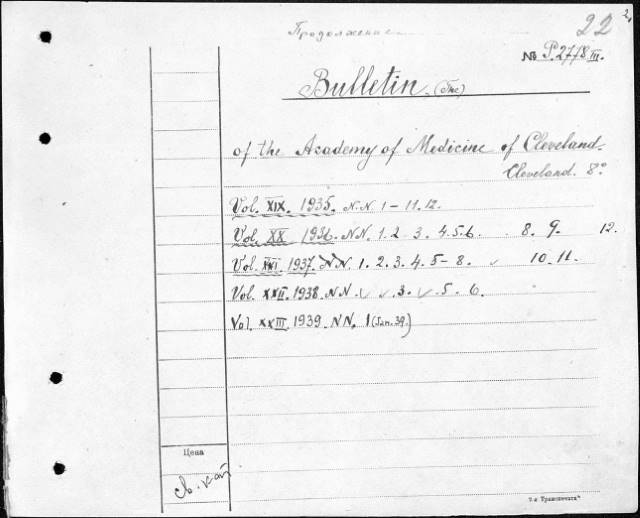 22
Продолжение
№ P.27/8 III.
Bulletin, (The)
of the Academy of Medicine of Cleveland.
Cleveland. 8°
Vol. XIX. 1935. N.N. 1 – 11. 12.
Vol. XX 1936. N.N. 1. 2 3. 4.5.6. 8. 9. 12.
Vol. XXI. 1937. N.N. 1. 2. 3. 4. 5 – 8. 10. 11.
Vol. XXII. 1938. N.N. 3. 5. 6.
Vol. XXIII. 1939. NN. 1 (Jan. 39.)
Цена
св. кат.